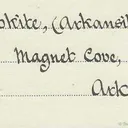 okite, (Arkansi
Magnet Cove,
Ark